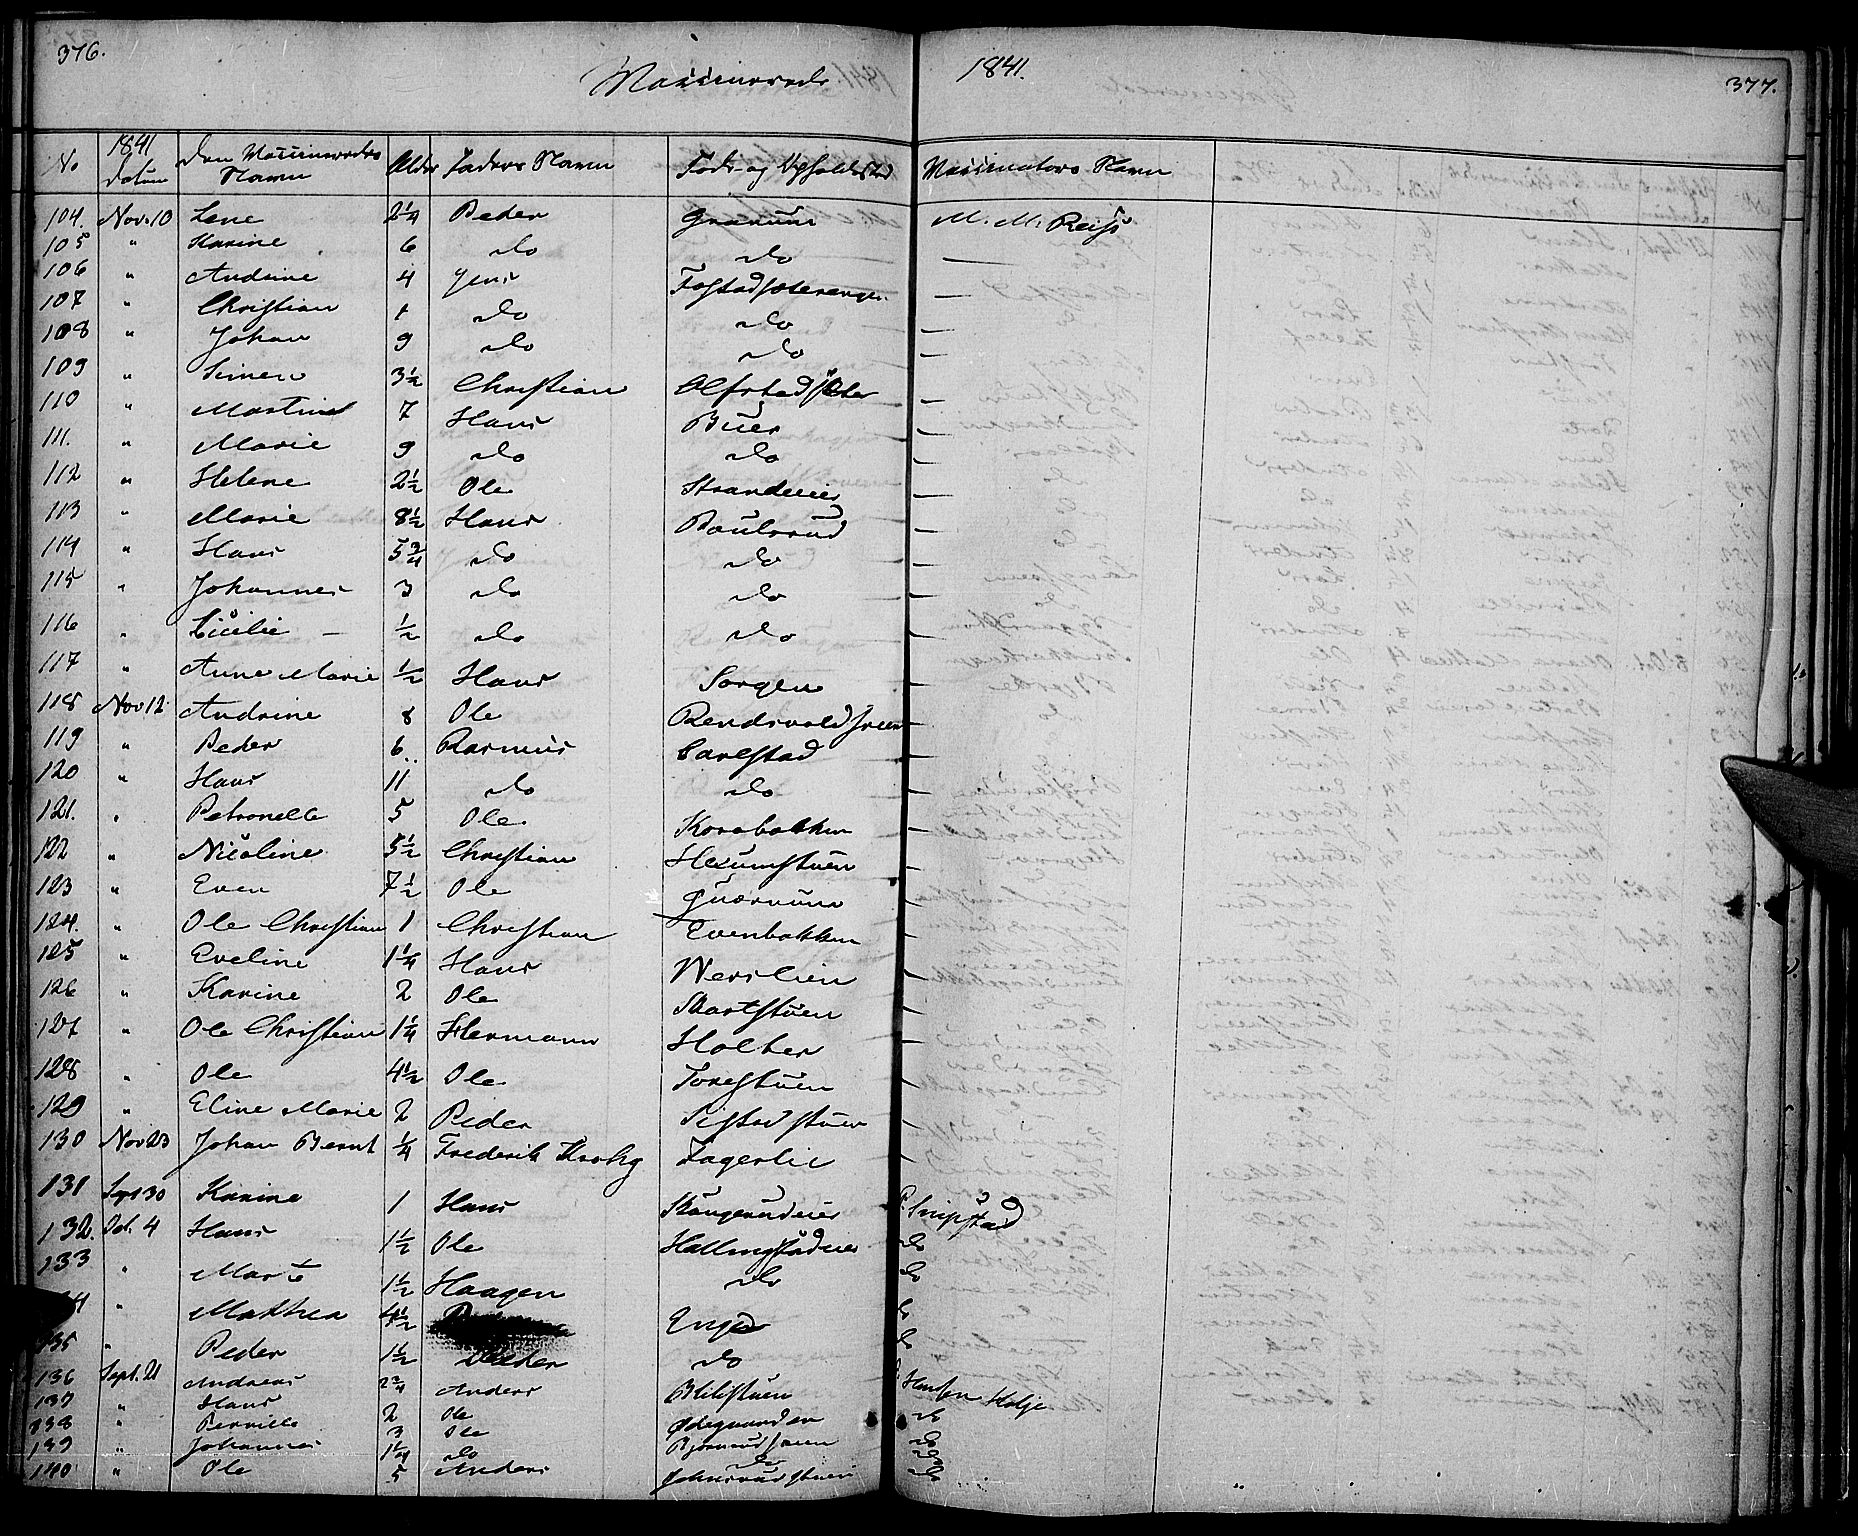 376.
Vaccinerede
1841.
377.
No 1841 Datum Den Vaccineredes Navn Alder Faders Navn Føde- og Opholdssted Vaccinators Navn
104. Nov. 10 Lene 2¼ Peder Grarum M. M. Reiss
105 " Karine 6 do do —
106 " Andrine 4 Jens Fostadsæterenger —
107 " Christian 1 do do —
108 " Johan 9 do do —
109 " Simen 3½ Christian Olfstadsæter —
110 " Martine 7 Hans Buer —
111. " Marie 9 do do —
112 " Helene 2½ Ole Strandeier —
113 " Marie 8½ Hans Paulsrud —
114 " Hans 5¾ do do —
115 " Johannes 3 do do —
116 " Cicilie — ½ do do —
117 " Anne Marie ½ Hans Sorgen —
118 Nov 12 Andrine 8 Ole Rendsvold —
119 " Peder 6 Rasmus Carlstad —
120 " Hans 11 do do —
121. " Petronelle 5 Ole Korsbakken —
122 " Nicoline 5½ Christian Hexumstuen —
123 " Even 7½ Ole Quærnum —
124. " Ole Christian 1 Christian Evenbakken —
125 " Eveline 1¼ Hans Werslien —
126 " Karine 2 Ole Skartstuen —
127 " Ole Christian 1¼ Hermann Holter —
128 " Ole 4½ Ole Torestuen —
129 " Eline Marie 2 Peder Sistadstuen —
130 Nov 23 Johan Bernt ¼ Frederik Krohg Fagerlie —
131 Sept 30 Karine 1 Hans Skougerudeier P. Snipstad
132. Oct. 4 Hans 1½ Ole do
133 " Marte 1½ Haagen do do
" Mathea 4½ Enge do
135 " Peder 1½ Peder do do
136 Sept. 21 Andreas 2¾ Anders Blilistuen Hansen Holje
137 " Hans 2 Ole Ødegaarden do
138 " Pernille 3 Ole do
139 " Johannes 1¼ do do do
140 " Ole 5 Anders do